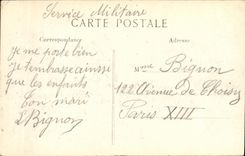 Service Militaire
CARTE POSTALE
Correspondance
Adresse
Je me porte bien
je t'embrasse ainsi
que les enfants
Ton mari
L Bignon
Mme Bignon
122 Avenue de Choisy
Paris XIII